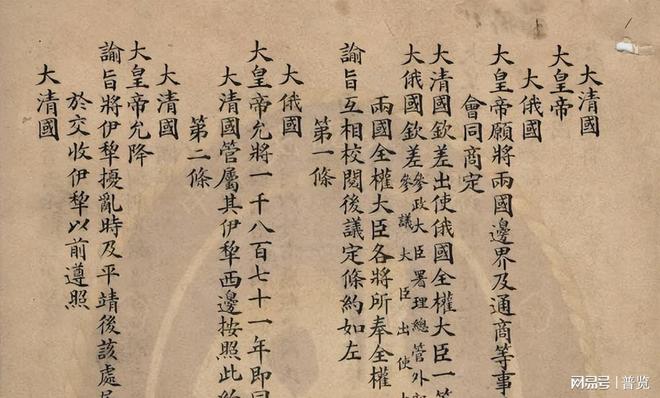 大清國
大皇帝
大俄國
大皇帝願將兩國邊界及通商等事
會同商定
大清國欽差出使俄國全權大臣一
大俄國欽差參政大臣署理總管外
參議大臣出使
兩國全權大臣各將所奉全權
諭旨互相校閱後議定條約如左
第一條
大俄國
大皇帝允將一千八百七十一年即同
大清國管屬其伊犂西邊按照此
第二條
大清國
大皇帝允降
諭旨將伊犂擾亂時及平靖後該處
於交收伊犂以前遵照
大清國
網易号 | 普览